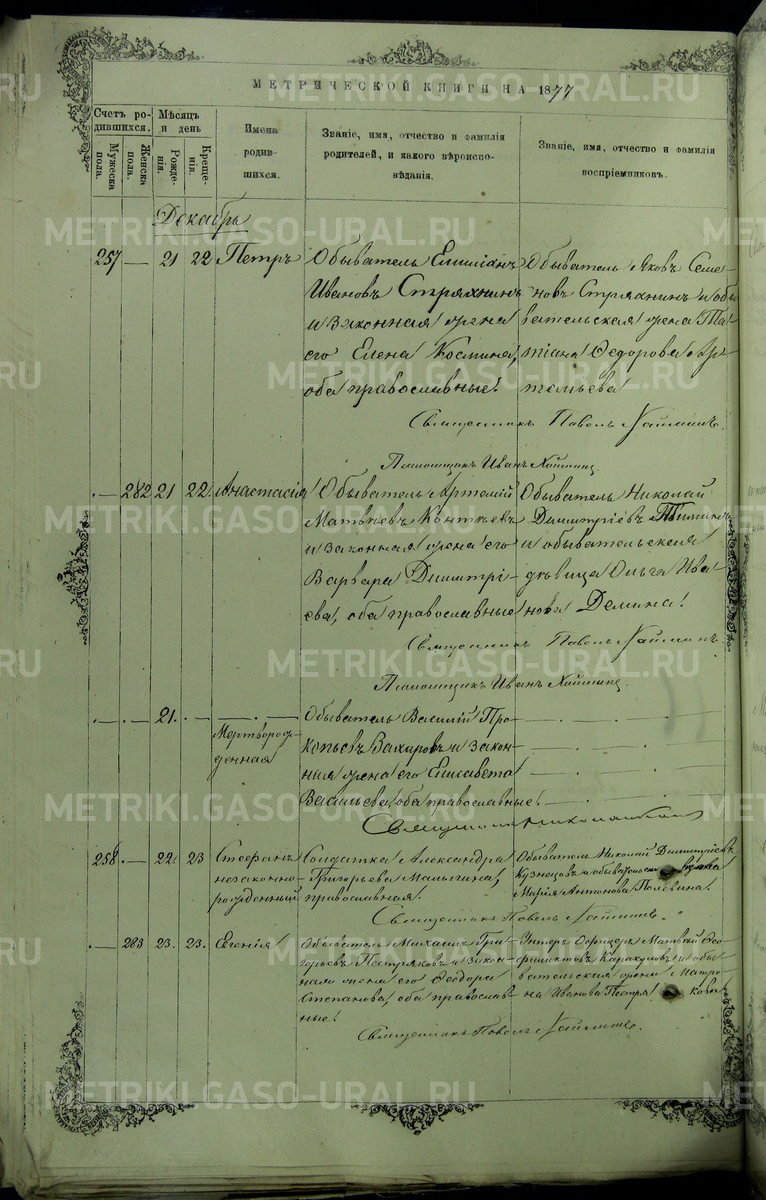 МЕТРИЧЕСКОЙ КНИГИ НА 1877
Счетъ ро-
дившихся.
Мужеска
пола.
Женска
пола.
Мѣсяцъ
и день
Рожде-
нія.
Креще-
нія.
Имена
родив-
шихся.
Званіе, имя, отчество и фамилія
родителей, и какого вѣроиспо-
вѣданія.
Званіе, имя, отчество и фамилія
воспріемниковъ.
Декабрь
257 — 21 22 Петръ
Обыватель Емиліанъ
Ивановъ Стряхнинъ
и законная жена
его Елена Космина,
оба православные.
Обыватель Яковъ Семе-
новъ Стряхнинъ и обы-
вательская жена Та-
тіана Федорова Ар-
темьева
Священникъ Павелъ
Иванъ
— 282 21 22 Анастасія
Обыватель Артемій
Матвѣевъ
и законная жена его
Варвара Димитрі-
ева, оба православные
Обыватель Николай
Димитріевъ
и обывательская
дѣвица Ольга Ива-
нова Демина.
Священникъ Павелъ
Иванъ
— — 21. — —
Мертворож-
денная
Обыватель Василій Про-
копьевъ Вахировъ и закон-
ная жена его Елисавета
Васильева, оба православные.
Священникъ
258 — 22 23 Стефанъ
незаконно-
рожденный
Солдатка Александра
Григорьева Малыгина,
православная.
Обыватель Николай Димитріевъ
Кузнецовъ и
Марія Антонова Полевина.
Священникъ Павелъ
— 283 23. 23. Евгенія
Обыватель Михаилъ Гри-
горьевъ Пестряковъ и закон-
ная жена его Феодора
Степанова, оба православ-
ные.
Унтеръ Офицеръ Матвѣй Фео-
филактовъ Каракуловъ и обы-
вательская жена Матро-
на Иванова Пестрякова
Священникъ Павелъ
METRIKI.GASO-URAL.RU